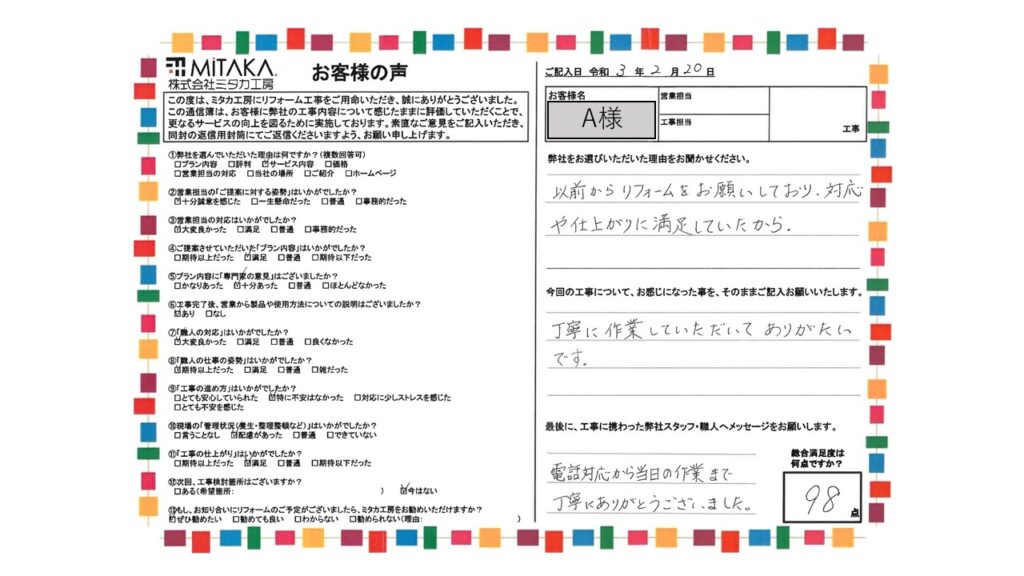 MiTAKA
株式会社ミタカ工房
お客様の声
この度は、ミタカ工房にリフォーム工事をご用命いただき、誠にありがとうございました。
この通信簿は、お客様に弊社の工事内容について感じたままに評価していただくことで、
更なるサービスの向上を図るために実施しております。素直なご意見をご記入いただき、
同封の返信用封筒にてご返信くださいますよう、お願い申し上げます。
①弊社を選んでいただいた理由は何ですか?(複数回答可)
□プラン内容 □評判 ☑サービス内容 □価格
□営業担当の対応 □当社の場所 □ご紹介 □ホームページ
②営業担当の「ご提案に対する姿勢」はいかがでしたか?
☑十分誠意を感じた □一生懸命だった □普通 □事務的だった
③営業担当の対応はいかがでしたか?
☑大変良かった □満足 □普通 □事務的だった
④ご提案させていただいた「プラン内容」はいかがでしたか?
□期待以上だった ☑満足 □普通 □期待以下だった
⑤プラン内容に「専門家の意見」はございましたか?
□かなりあった ☑十分あった □普通 □ほとんどなかった
⑥工事完了後、営業から製品や使用方法についての説明はございましたか?
☑あり □なし
⑦「職人の対応」はいかがでしたか?
☑大変良かった □満足 □普通 □良くなかった
⑧「職人の仕事の姿勢」はいかがでしたか?
☑期待以上だった □満足 □普通 □雑だった
⑨「工事の進め方」はいかがでしたか?
□とても安心していられた ☑特に不安はなかった □対応に少しストレスを感じた
□とても不安を感じた
⑩現場の「管理状況(養生・整理整頓など)」はいかがでしたか?
□言うことなし ☑配慮があった □普通 □できていない
⑪「工事の仕上がり」はいかがでしたか?
□期待以上だった ☑満足 □普通 □期待以下だった
⑫次回、工事検討箇所はございますか?
□ある(希望箇所: ) ☑今はない
⑬もし、お知り合いにリフォームのご予定がございましたら、ミタカ工房をお勧めいただけますか?
☑ぜひ勧めたい □勧めても良い □わからない □勧められない(理由: )
ご記入日 令和 3 年 2 月 20 日
お客様名
A様
営業担当
工事担当
工事
弊社をお選びいただいた理由をお聞かせください。
以前からリフォームをお願いしており、対応
や仕上がりに満足していたから.
今回の工事について、お感じになった事を、そのままご記入お願いいたします。
丁寧に作業していただいてありがたい
です。
最後に、工事に携わった弊社スタッフ・職人へメッセージをお願いします。
電話対応から当日の作業まで
丁寧にありがとうございました。
総合満足度は
何点ですか?
98 点